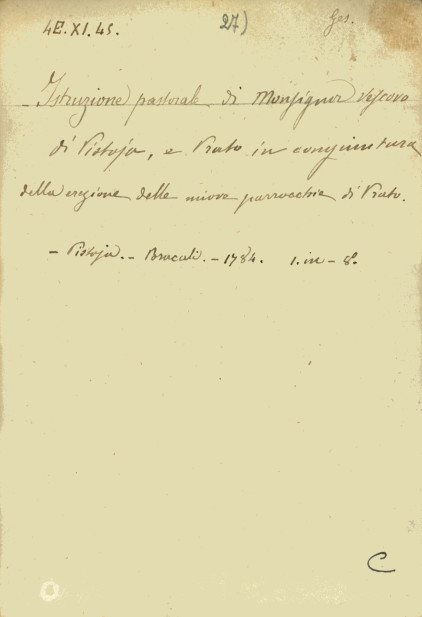 4E.XI.45. 27) Ges.
Istruzione pastorale di Monsignor Vescovo
di Pistoja, e Prato in congiuntura
della erezione delle nuove parrocchie di Prato.
- Pistoja. - Bracali. - 1784. 1. in - 8º.
C